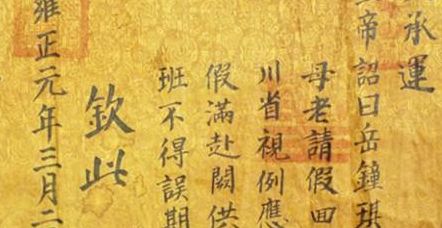 承運
帝詔曰岳鐘琪
母老請假回
川省視例應
假滿赴闕供
班不得誤期
欽此
雍正元年三月二